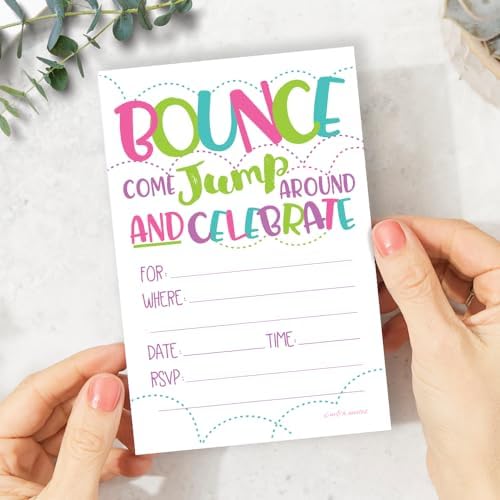 BOUNCE
COME Jump AROUND
AND CELEBRATE
FOR:
WHERE:
DATE: TIME:
RSVP: